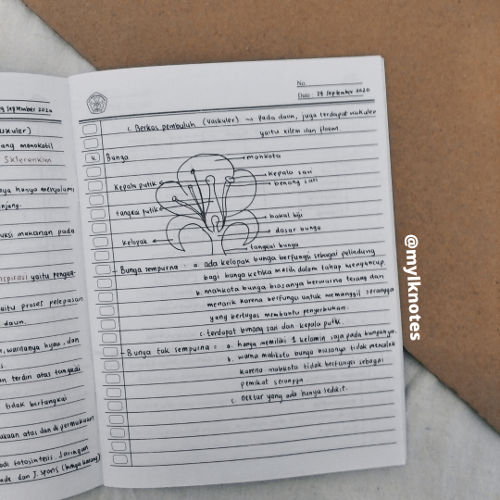 29 September 2020
uskuler)
ang monokotil
Sklerenkim
nya hanya menjalani
njang.
uksi makanan pada
nspirasi yaitu penguap
aitu proses pelepasan
daun.
, warnanya hijau, dan
n terdiri atas
tidak bertangkai
ukaan atas dan di permukaan
adi fotosintesis Jaringan
ade dan J. spons (bunga karang)
No.
Date : 29 September 2020
c. Berkas pembuluh (vaskuler) → Pada daun, juga terdapat vaskuler
yaitu xilem dan floem.
k. Bunga
mahkota
kepala sari
benang sari
Kepala putik
tangkai putik
kelopak
bakal biji
dasar bunga
tangkai bunga
- Bunga sempurna : a. ada kelopak bunga berfungsi sebagai pelindung
bagi bunga ketika masih dalam tahap menguncup.
b. mahkota bunga biasanya berwarna terang dan
menarik karena berfungsi untuk memanggil serangga
yang bertugas membantu penyerbukan.
c. terdapat benang sari dan kepala putik.
- Bunga tak sempurna : a. hanya memiliki 1 kelamin saja pada bunganya.
b. warna mahkota bunga biasanya tidak mencolok
karena mahkota tidak berfungsi sebagai
pemikat serangga
c. nektar yang ada hanya sedikit.
@mylknotes